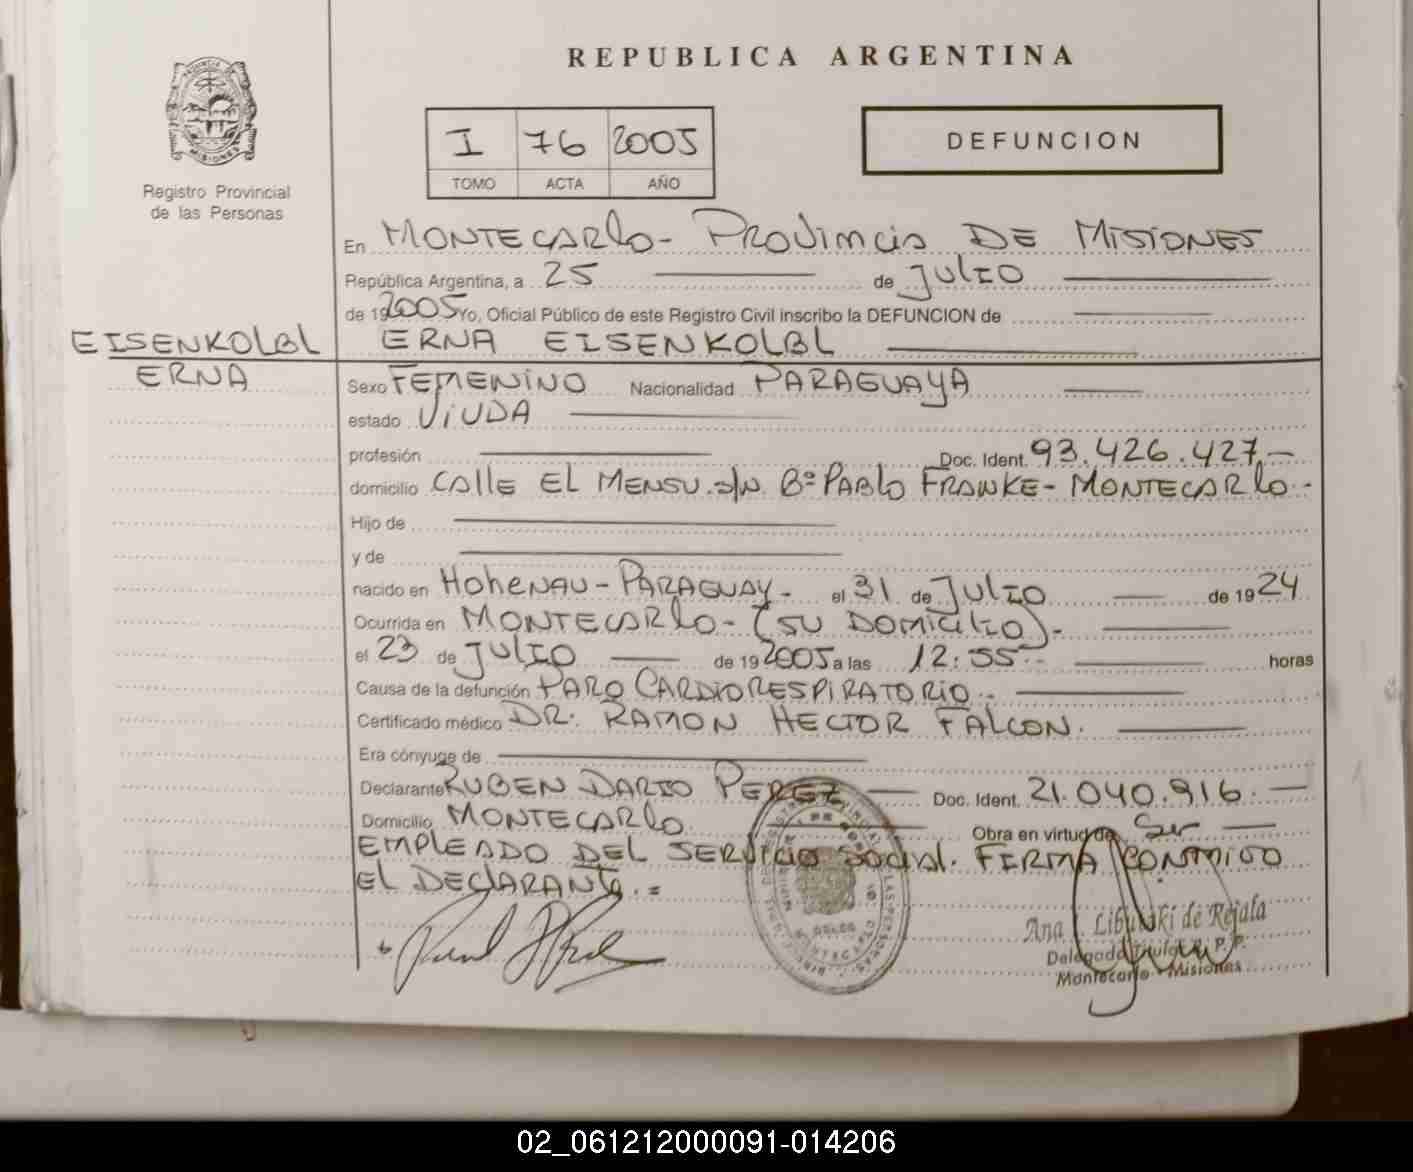 REPUBLICA ARGENTINA
PROVINCIA DE
MISIONES
Registro Provincial
de las Personas
I 76 2005
TOMO ACTA AÑO
DEFUNCION
En MONTECARLO - PROVINCIA DE MISIONES
República Argentina, a 25 de JULIO
de 19 2005 Yo, Oficial Público de este Registro Civil inscribo la DEFUNCION de
EISENKOLBL ERNA EISENKOLBL
ERNA
Sexo FEMENINO Nacionalidad PARAGUAYA
estado VIUDA
profesión Doc. Ident. 93.426.427.-
domicilio CALLE EL MENSU s/N Bº PABLO FRANKE - MONTECARLO -
Hijo de
y de
nacido en HOHENAU - PARAGUAY - el 31 de JULIO de 19 24
Ocurrida en MONTECARLO - (SU DOMICILIO) -
el 23 de JULIO de 19 2005 a las 12:55 -- horas
Causa de la defunción PARO CARDIORESPIRATORIO -
Certificado médico DR. RAMON HECTOR FALCON.
Era cónyuge de
Declarante RUBEN DARIO PEREZ Doc. Ident. 21.040.916.
Domicilio MONTECARLO Obra en virtud de Ser
EMPLEADO DEL SERVICIO SOCIAL. FIRMA CONMIGO
EL DECLARANTE. =
Ana de Rejala
Delegada Titular R. P. P.
Montecarlo - Misiones
02_061212000091-014206